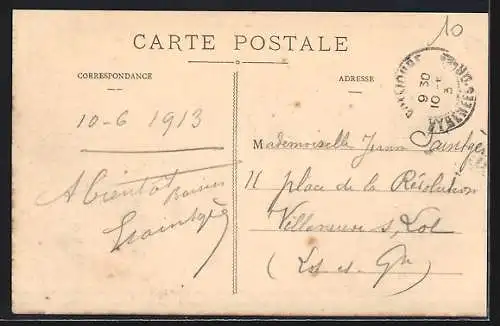 10
CARTE POSTALE
CORRESPONDANCE
ADRESSE
9 30
10 - 6
10-6 1913
Mademoiselle Jeanne
A Bientôt Baisers
11 place de la Révolution
Villeneuve s/ Lot
(Lot-et-Gne)